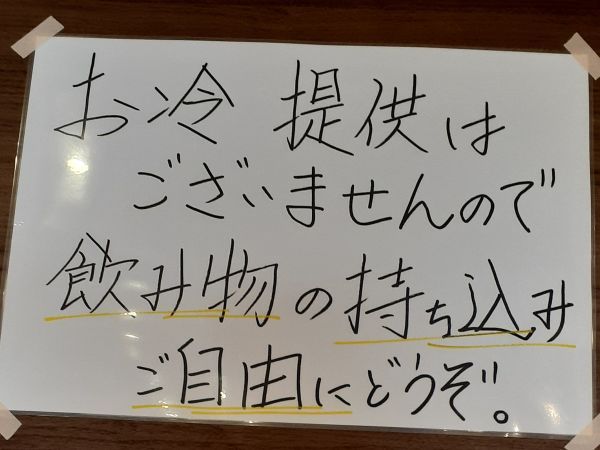 お冷 提供は
ございませんので
飲み物の持ち込み
ご自由にどうぞ。